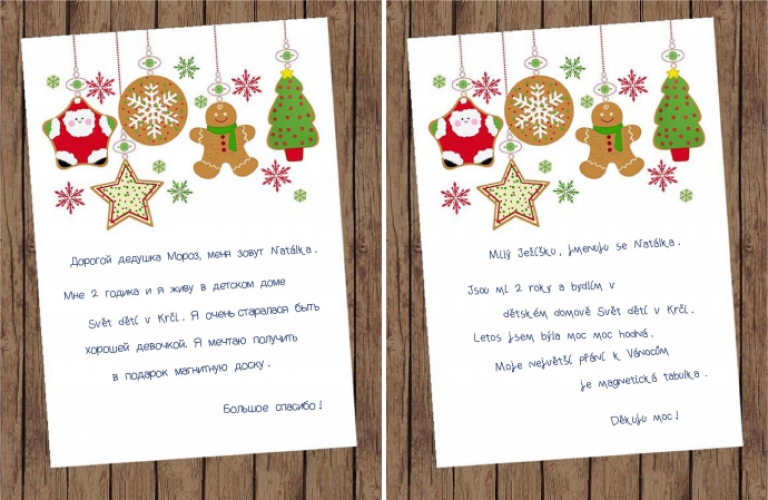 Дорогой дедушка Мороз, меня зовут Natálka.
Мне 2 годика и я живу в детском доме
Svět dětí v Krči. Я очень старалася быть
хорошей девочкой. Я мечтаю получить
в подарок магнитную доску.
Большое спасибо!
Milý Ježíšku, jmenuju se Natálka.
Jsou mi 2 roky a bydlím v
dětském domově Svět dětí v Krči.
Letos jsem byla moc moc hodná.
Moje největší přání k Vánocům
je magnetická tabulka.
Děkuju moc!